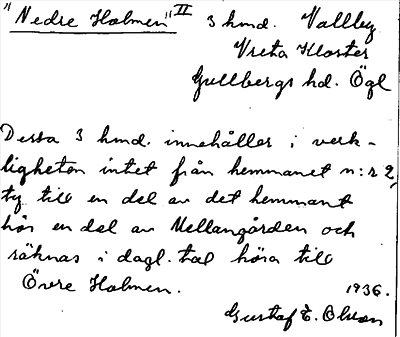 "Nedre Holmen" II 3 hmd. Vallby
Vreta Kloster
Gullbergs hd. Ögl
Dessa 3 hmd. innehåller i verk-
ligheten intet från hemmanet n:r 2,
ty till en del av det hemmant
hör en del av Mellangården och
räknas i dagl. tal höra till
Övre Holmen.
1936.
Gustaf E. Olsson